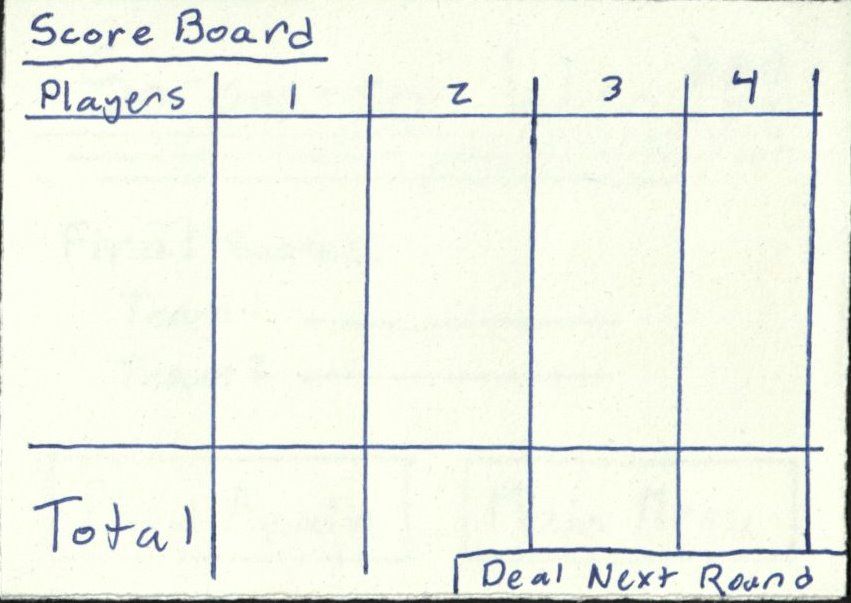 Score Board
Players 1 2 3 4
Total
Deal Next Round